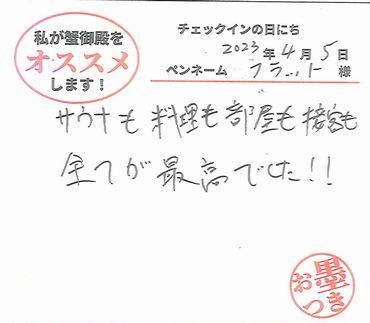 私が蟹御殿を
オススメ
します！
チェックインの日にち
2023年4月5日
ペンネーム フラット 様
サウナも料理も部屋も接客も
全てが最高でした!!
お墨つき